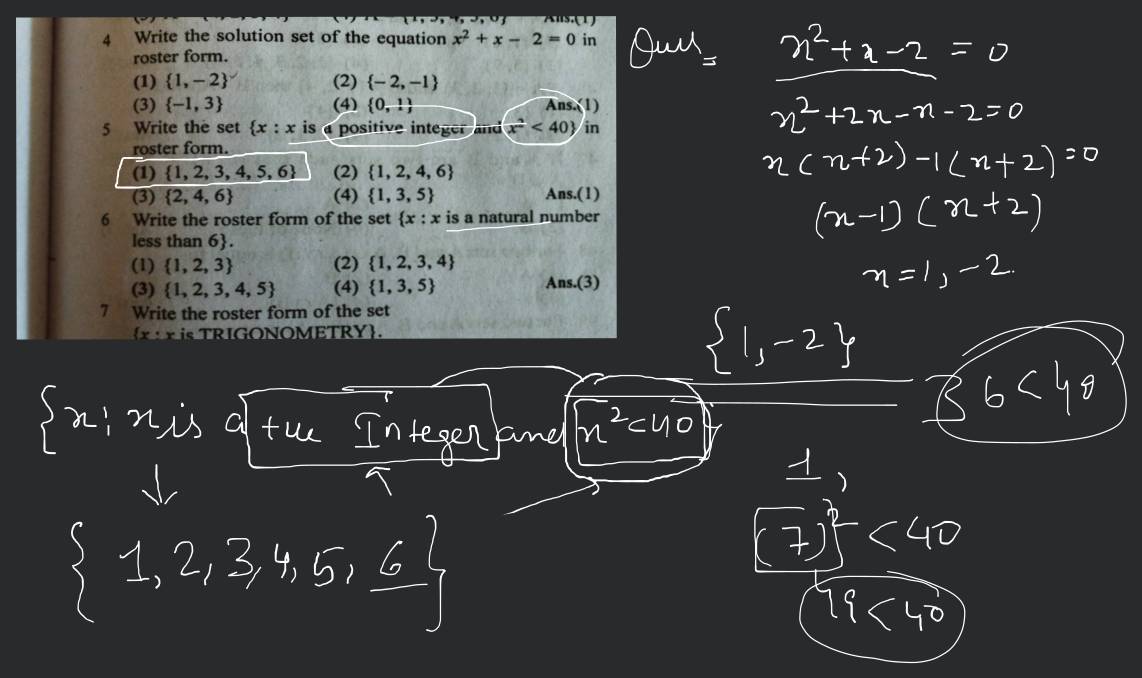 4 Write the solution set of the equation x² + x − 2 = 0 in
roster form.
(1) {1, −2} (2) {−2, −1}
(3) {−1, 3} (4) {0, 1} Ans.(1)
5 Write the set {x : x is a positive integer and x² < 40} in
roster form.
(1) {1, 2, 3, 4, 5, 6} (2) {1, 2, 4, 6}
(3) {2, 4, 6} (4) {1, 3, 5} Ans.(1)
6 Write the roster form of the set {x : x is a natural number
less than 6}.
(1) {1, 2, 3} (2) {1, 2, 3, 4}
(3) {1, 2, 3, 4, 5} (4) {1, 3, 5} Ans.(3)
7 Write the roster form of the set
{x : x is TRIGONOMETRY}.
x²+x-2 = 0
x²+2x-x-2=0
x(x+2)-1(x+2)=0
(x-1)(x+2)
x=1,-2.
{1,-2}
{x: x is a +ve Integer and x²<40}
36<40
1,
(7)²<40
49<40
{1,2,3,4,5,6}